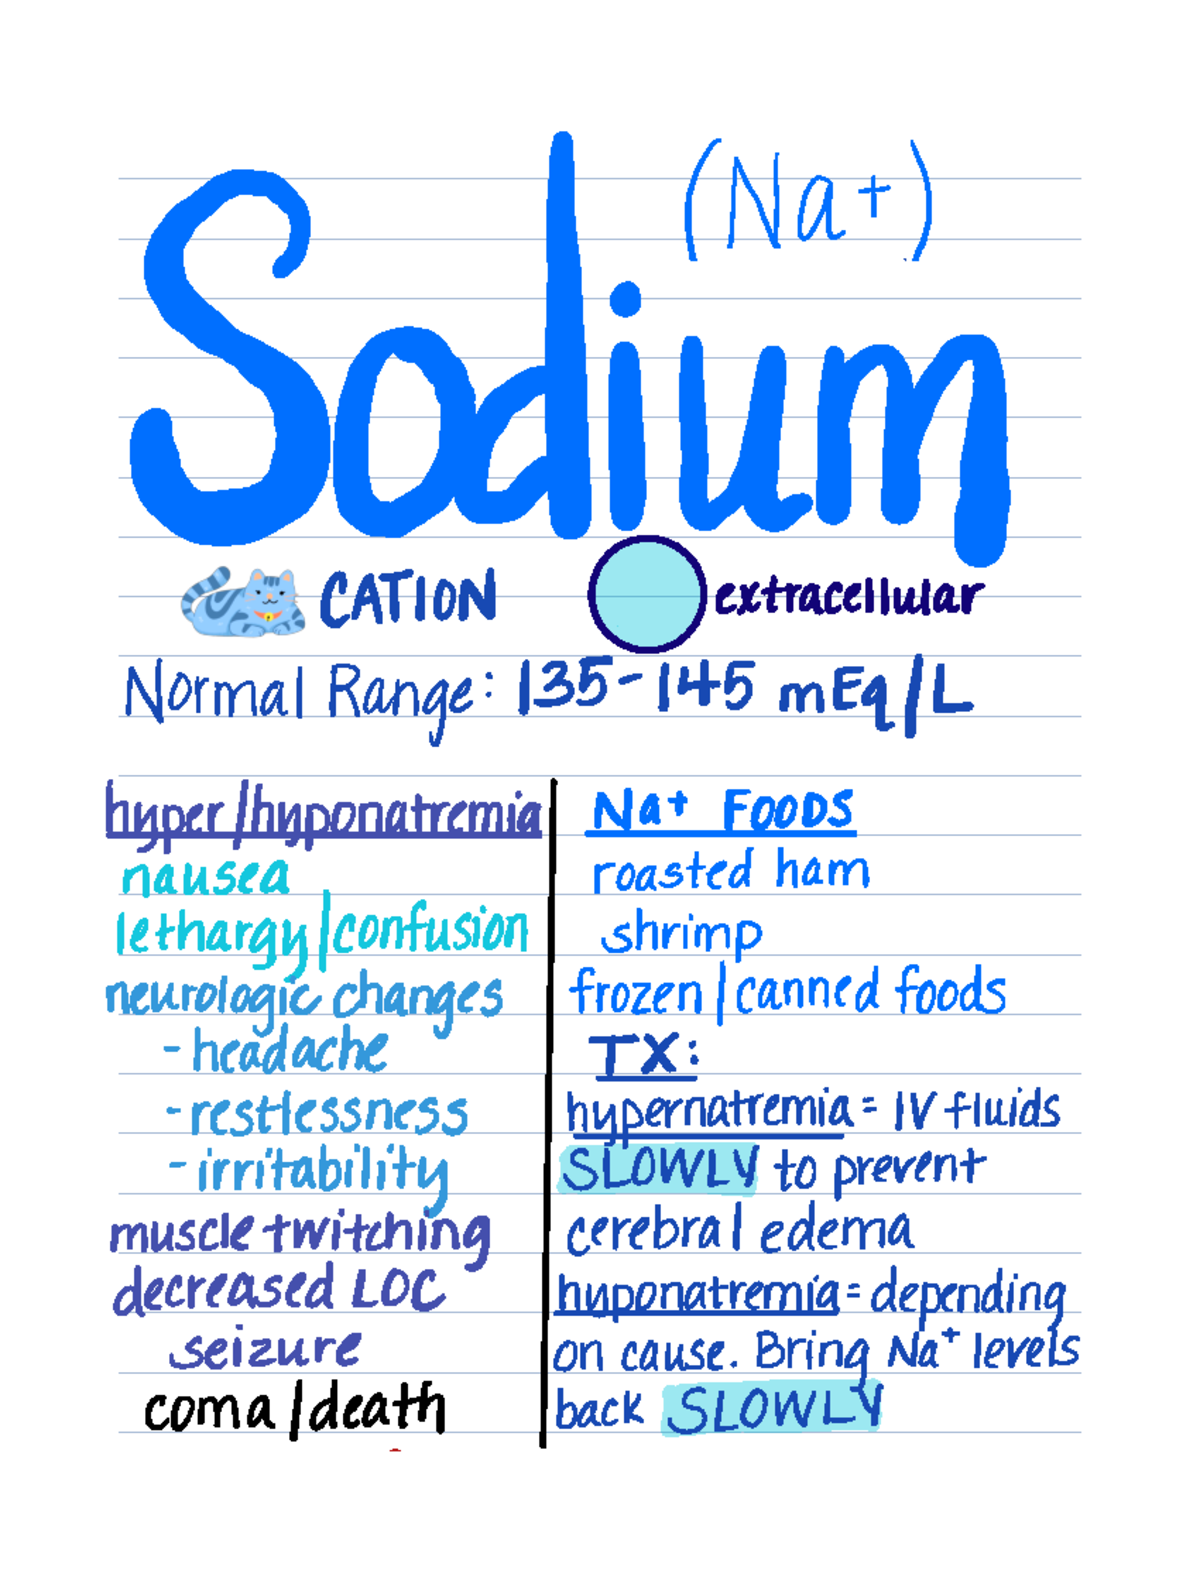 (Na+)
Sodium
CATION
extracellular
Normal Range: 135-145 mEq/L
hyper/hyponatremia
nausea
lethargy/confusion
neurologic changes
-headache
-restlessness
-irritability
muscle twitching
decreased LOC
seizure
coma/death
Na+ FOODS
roasted ham
shrimp
frozen/canned foods
TX:
hypernatremia = IV fluids
SLOWLY to prevent
cerebral edema
hyponatremia = depending
on cause. Bring Na+ levels
back SLOWLY